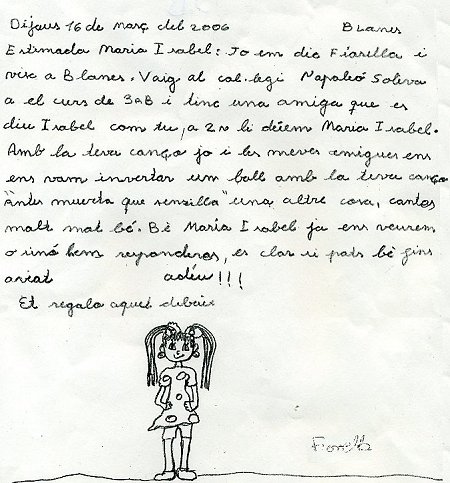 Dijous 16 de març del 2006 Blanes
Estimada Maria Isabel: Jo em dic Fiorella i
visc a Blanes. Vaig al col·legi Napoleó Soliva
a el curs de 3aB i tinc una amiga que es
diu Isabel com tu, a li deiem Maria Isabel.
Amb la teva canço jo i les meves amigues ens
ens vam inventar um ball amb la teva canço
"antes muerta que senzilla" una altre cosa, cantas
molt mol bé. Bé Maria Isabel ja ens veurem
o sinó hem respondras, es clar si pots bè fins
aviat adéu!!!
Et regalo aquet dibuix